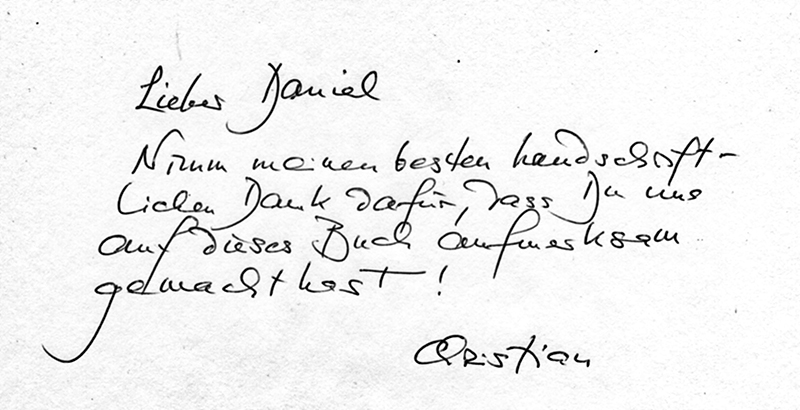 Lieber Daniel
Nimm meinen besten handschrift-
lichen Dank dafür, dass Du uns
auf dieses Buch aufmerksam
gemacht hast!
Christian